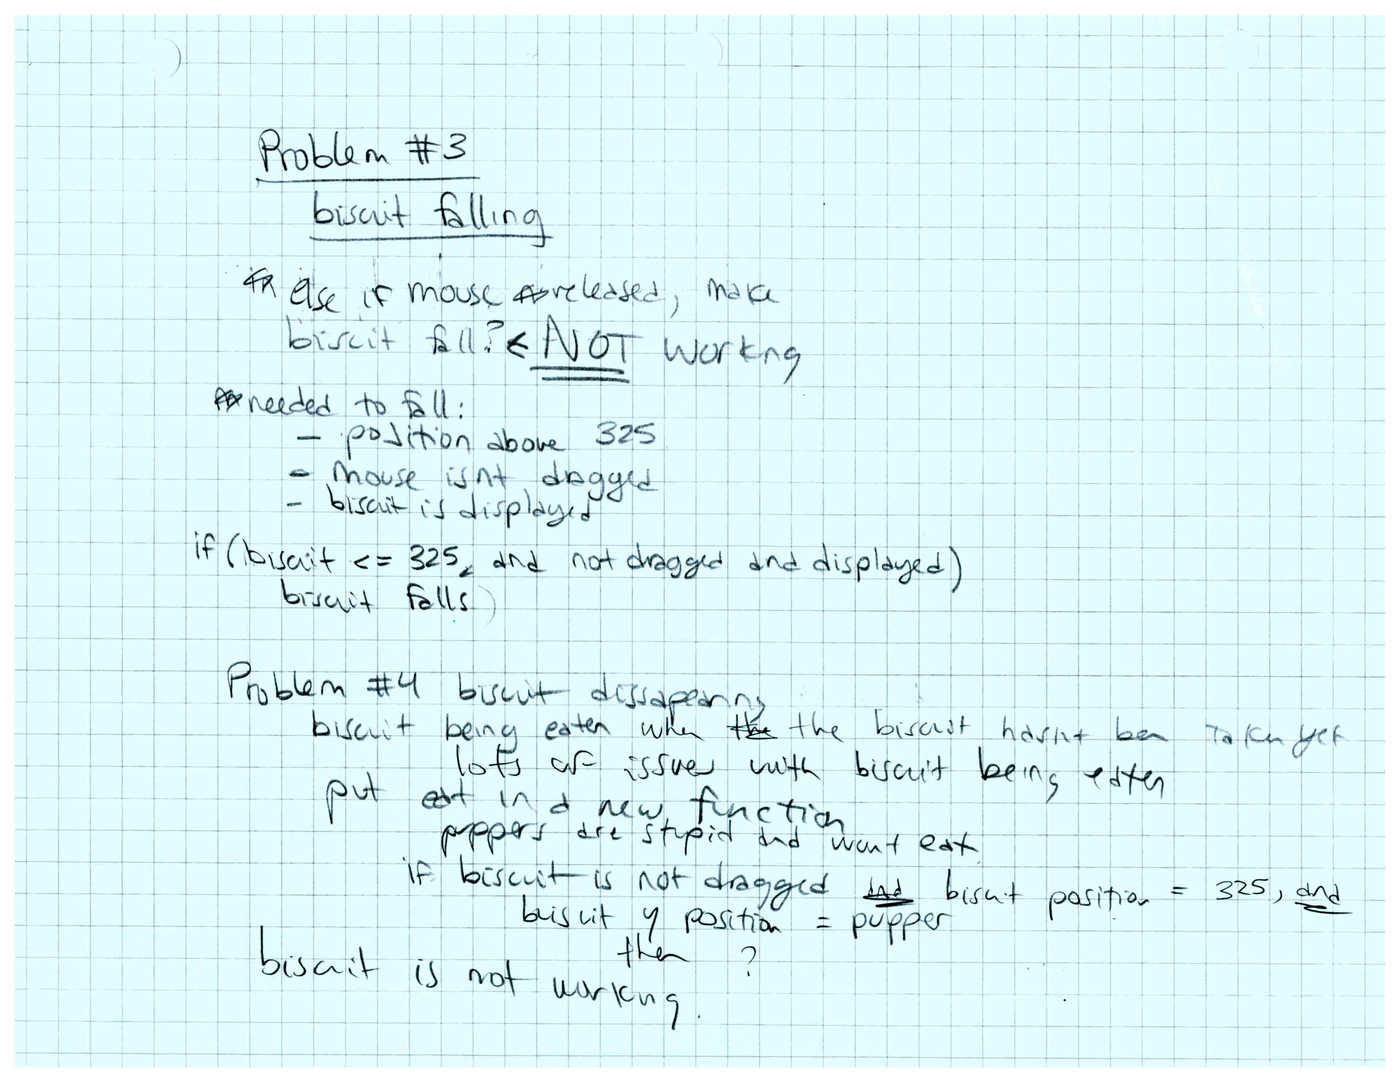 Problem #3
biscuit falling
* else if mouse released, make
biscuit fall? < NOT workng
* needed to fall:
- position above 325
- mouse isnt dragged
- biscuit is displayed
if (biscuit <= 325, and not dragged and displayed)
biscuit falls
Problem #4 biscuit dissapearing
biscuit being eaten when the the biscuit hasnt ben taken yet
lots of issues with biscuit being eaten
put eat in a new function
puppers are stupid and wont eat
if biscuit is not dragged and biscuit position = 325, and
biscuit y position = pupper
then ?
biscuit is not workng.